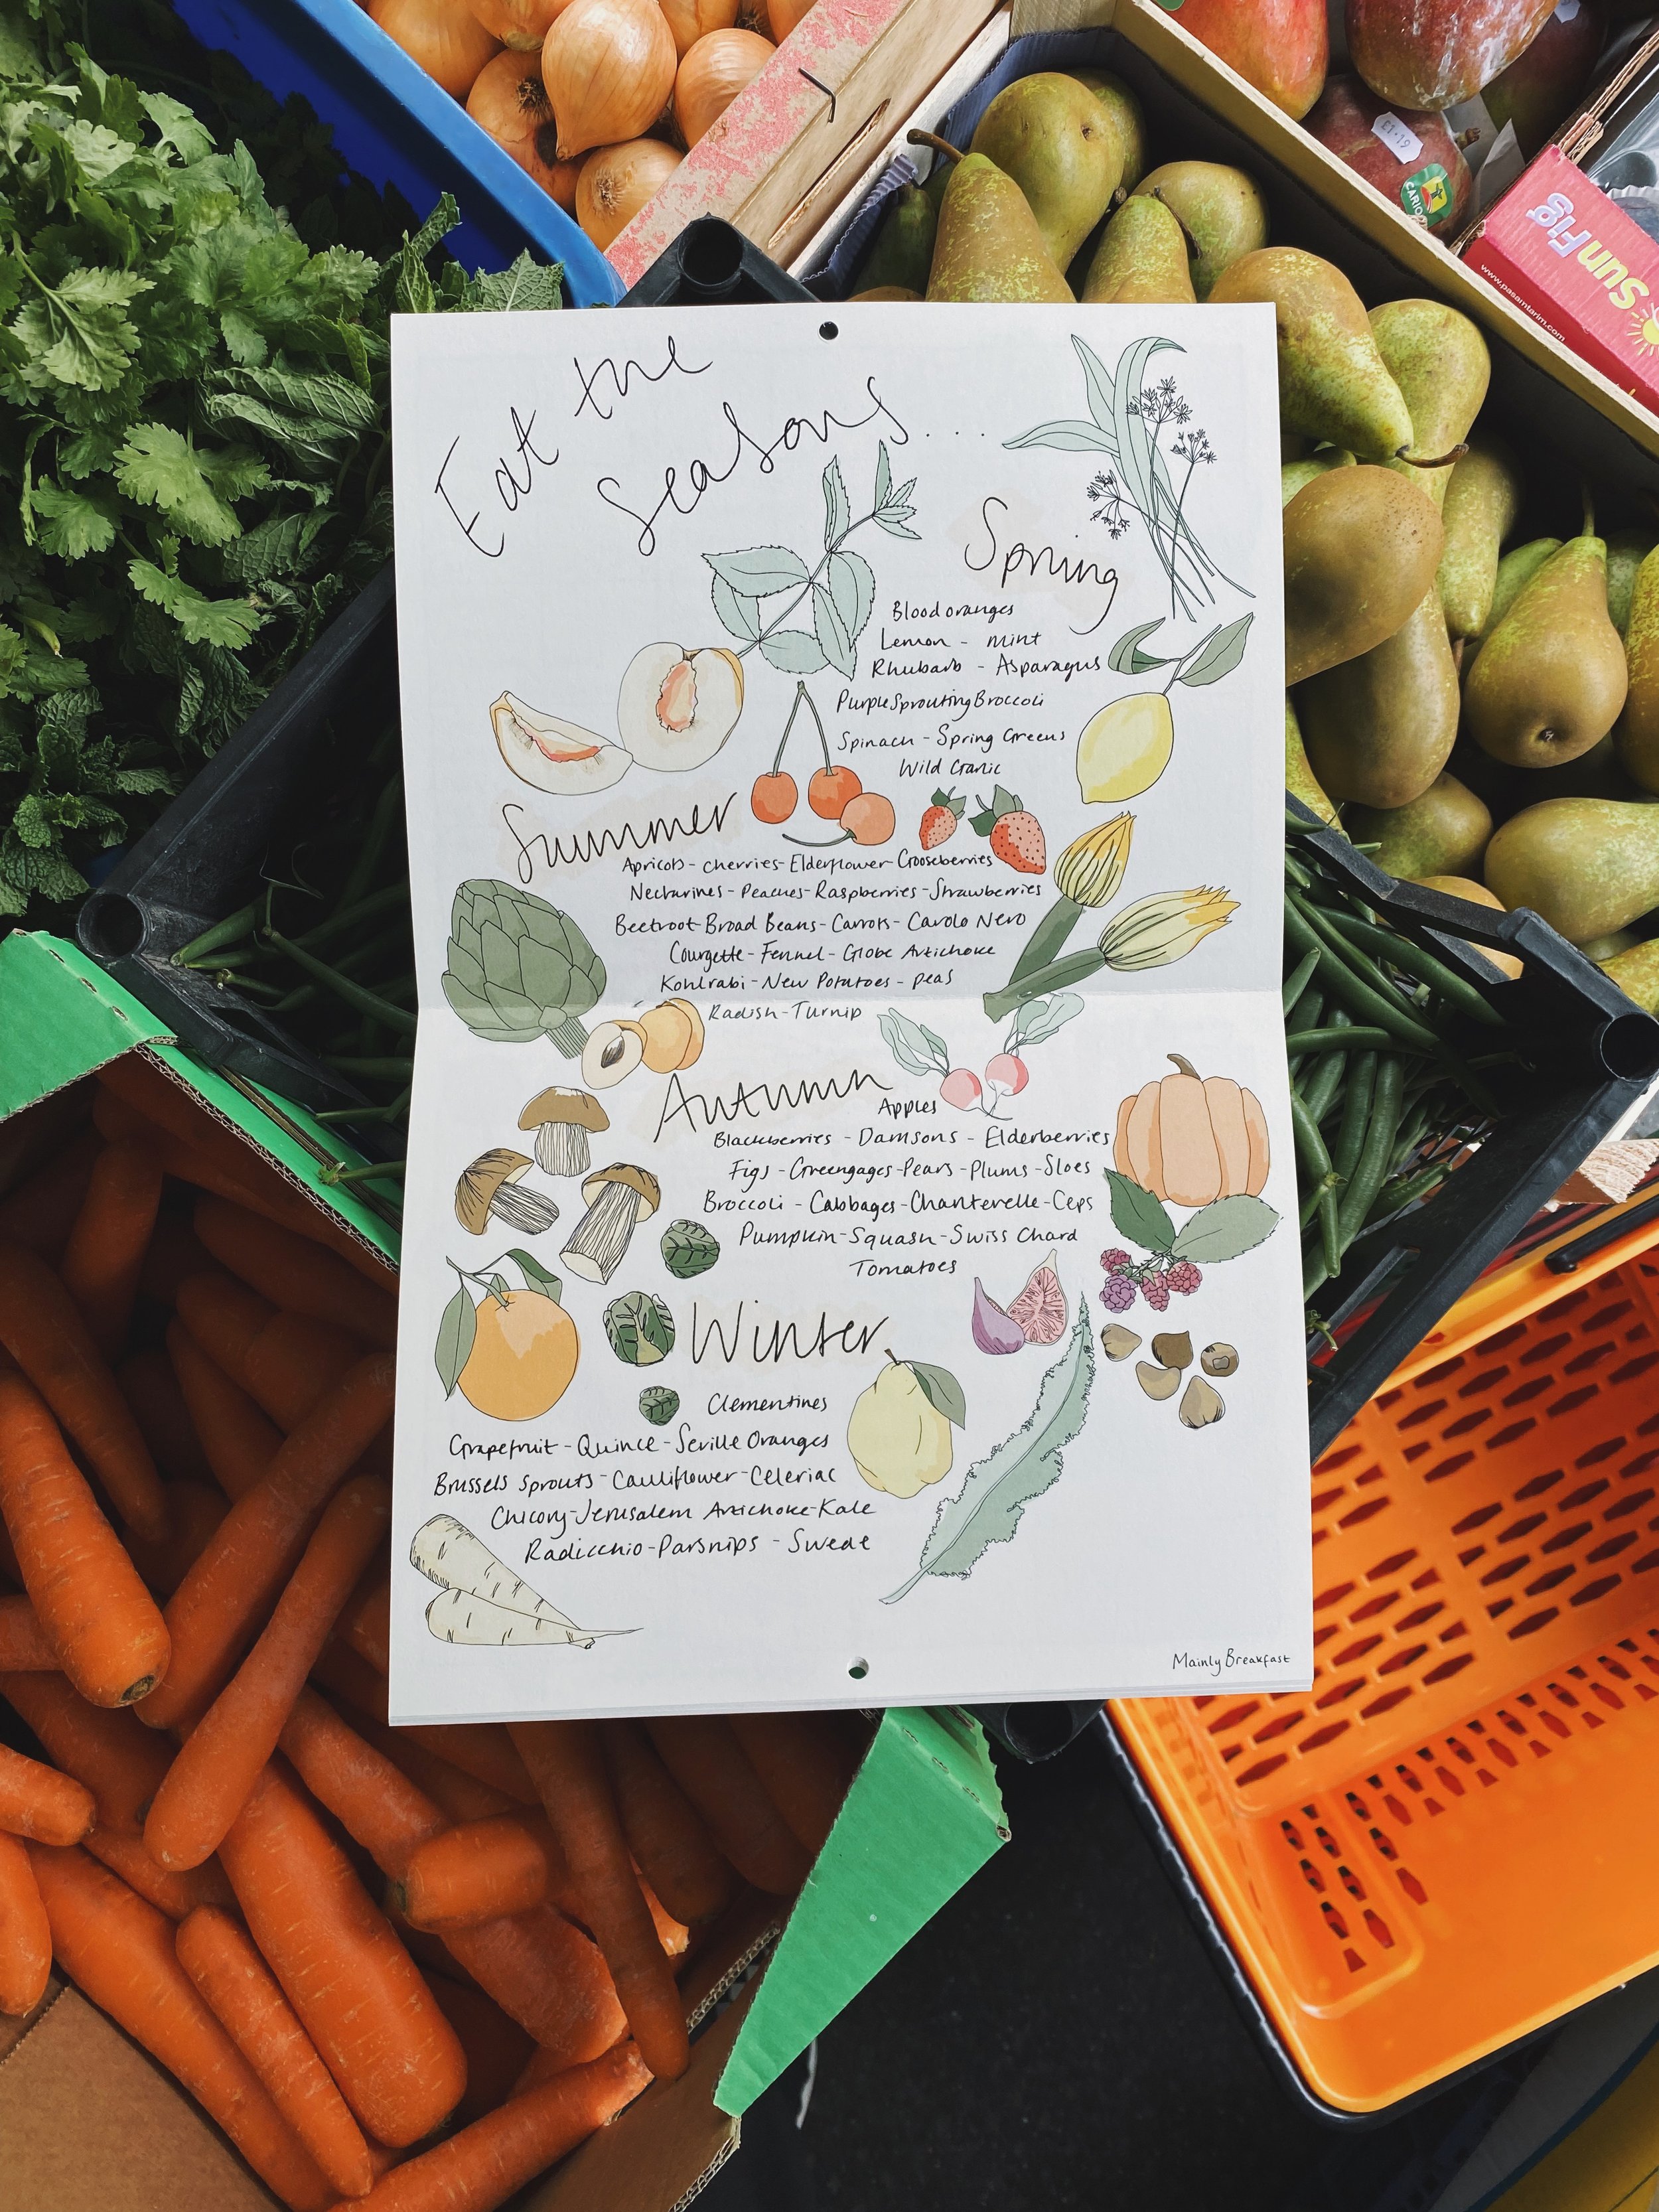 Eat the
Seasons....
Spring
Blood oranges
Lemon - mint
Rhubarb - Asparagus
Purple Sprouting Broccoli
Spinach - Spring Greens
Wild Garlic
Summer
Apricots - cherries - Elderflower - Gooseberries
Nectarines - Peaches - Raspberries - Strawberries
Beetroot - Broad Beans - Carrots - Cavolo Nero
Courgette - Fennel - Globe Artichoke
Kohlrabi - New Potatoes - peas
Radish - Turnip
Autumn
Apples
Blackberries - Damsons - Elderberries
Figs - Greengages - Pears - Plums - Sloes
Broccoli - Cabbages - Chanterelle - Ceps
Pumpkin - Squash - Swiss Chard
Tomatoes
Winter
Clementines
Grapefruit - Quince - Seville Oranges
Brussels sprouts - Cauliflower - Celeriac
Chicory - Jerusalem Artichoke - Kale
Radicchio - Parsnips - Swede
Mainly Breakfast
£1.19
SunFig
www.pasamtarim.com